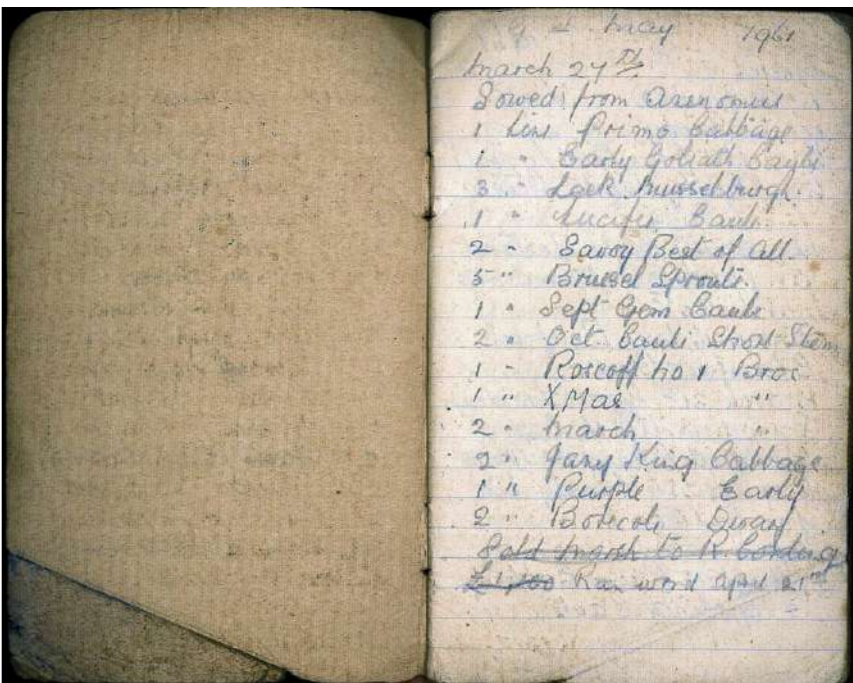 May 1961
March 27th
Sowed from
1 Line Primo Cabbage
1 " Early Goliath Cauli
3 " Leek Musselburgh
1 " Lucifer Cauli
2 " Savoy Best of All.
5 " Brussel Sprouts.
1 " Sept Gem Cauli
2 " Oct. Cauli Short Stem
1 " Roscoff No 1 Broc
1 " XMas "
2 " March "
2 " Jany King Cabbage
1 " Purple Early
2 " Borecole Dwarf
Sold Marsh to R.
£1,100 word April 21st